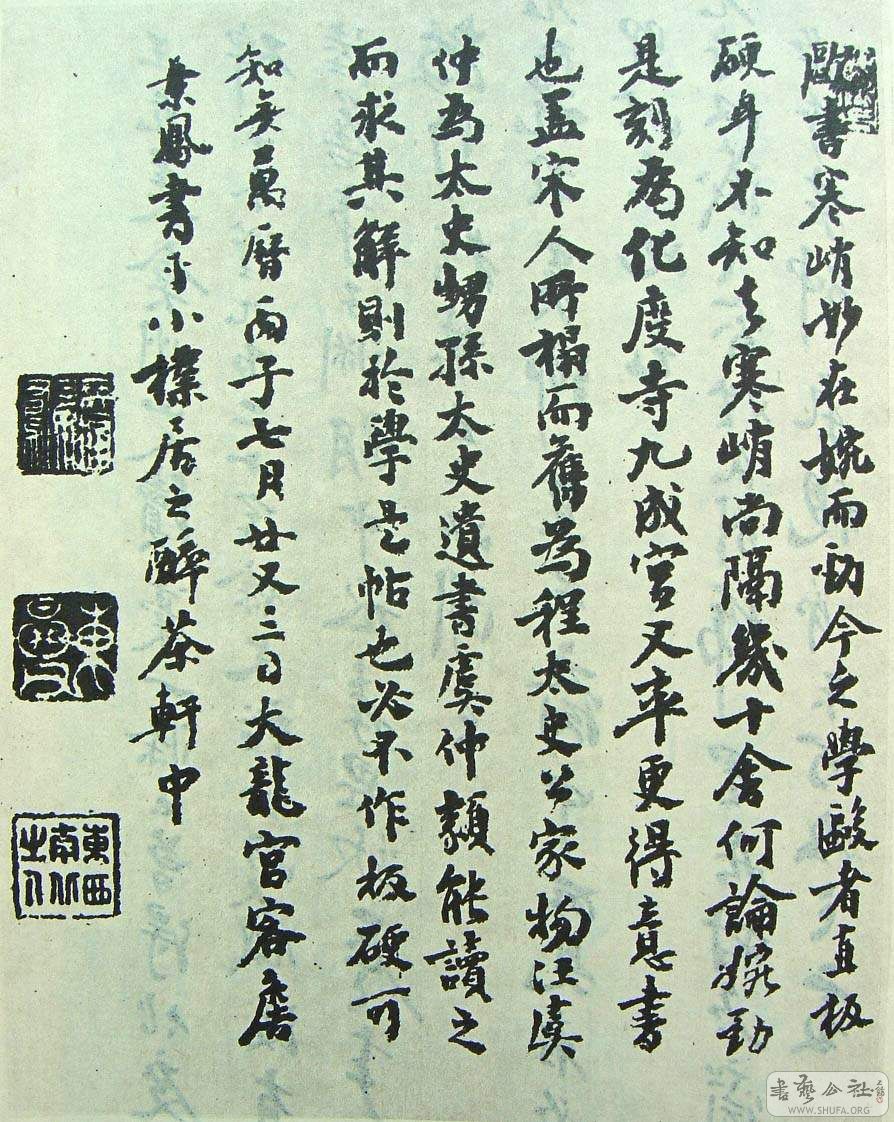 歐書寒峭妙在婉而勁今之學歐者直板
硬耳不知去寒峭尚隔幾十舍何論婉勁
是刻為化度寺九成宮又率更得意書
也盖宋人所搨而舊為程太史公家物汪虞
仲為太史甥孫太史遺書虞仲類能讀之
而求其解則於學是帖也必不作板硬可
知矣萬曆丙子七月廿又三日大龍宮客詹
景鳳書于小檏居之醉茶軒中
東西南北之人
書藝公社
WWW.SHUFA.ORG